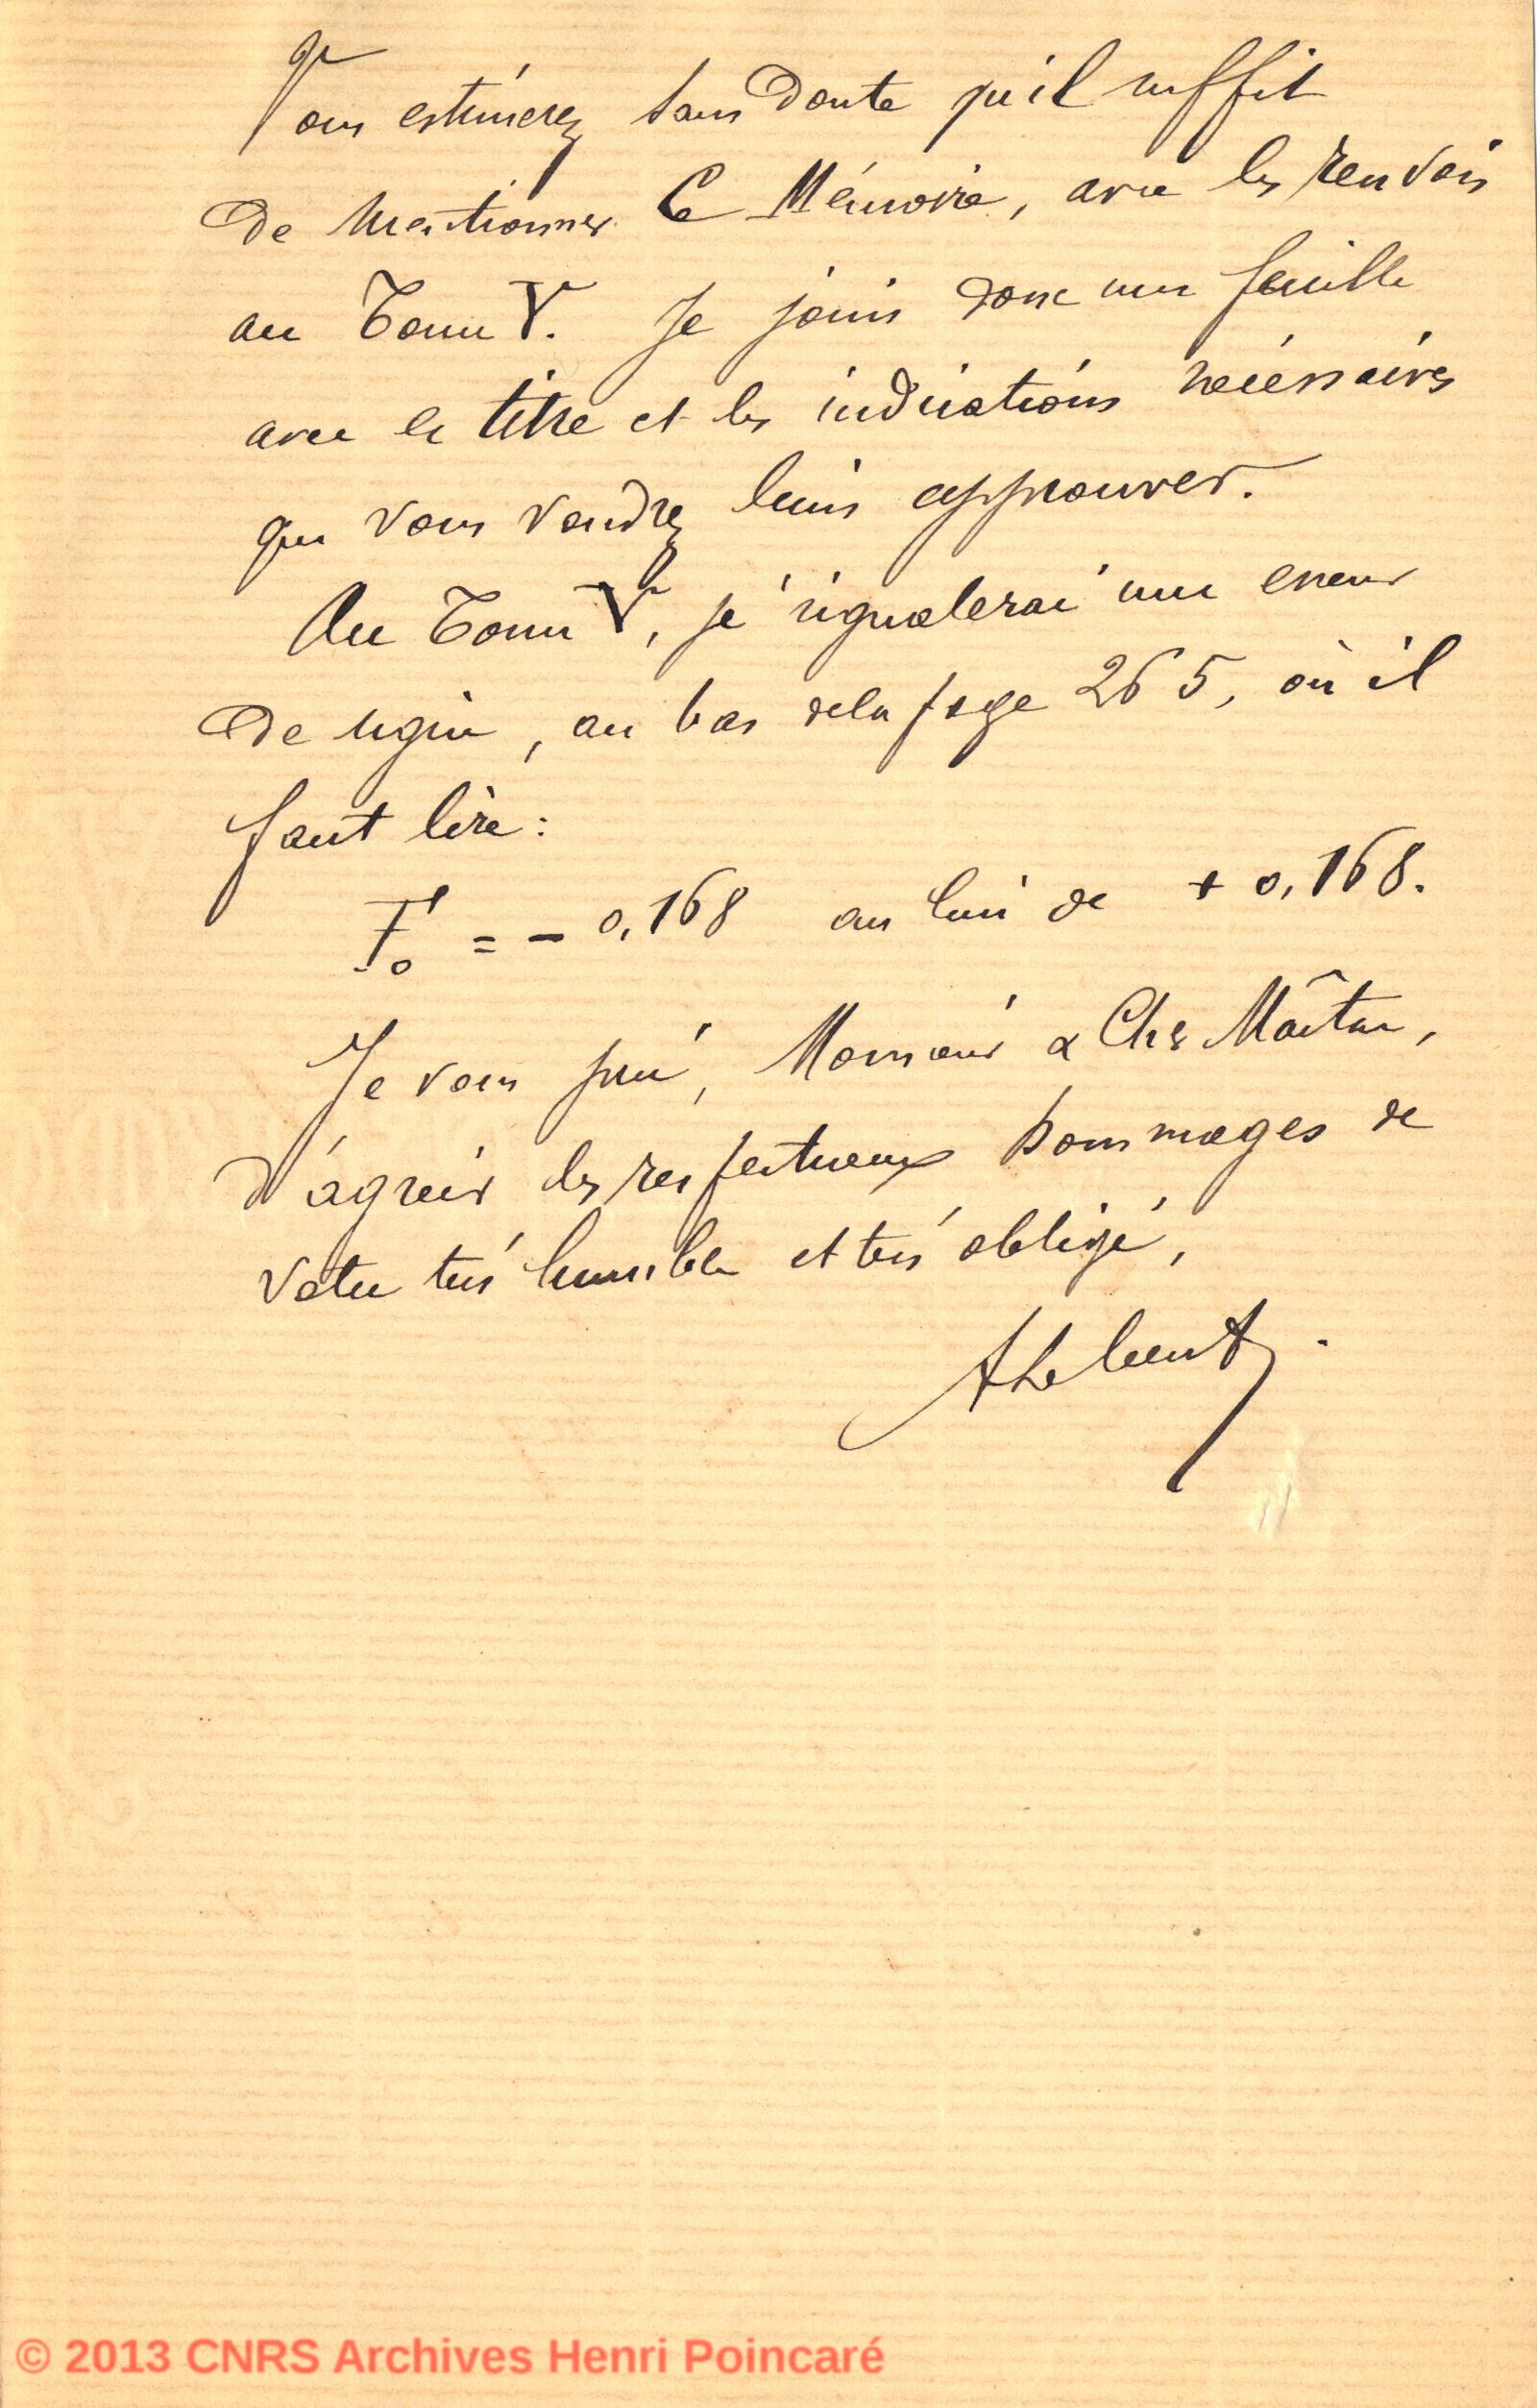 Vous estimerez sans doute qu'il suffit
de mentionner ce Mémoire, avec les renvois
au Tome V. Je joins donc une feuille
avec le titre et les indications nécessaires
que vous voudrez bien approuver.
Au Tome V, je signalerai une erreur
de signe, au bas de la page 265, où il
faut lire :
= - 0,168 au lieu de + 0,168.
Je vous prie, Monsieur & Cher Maître,
d'agréer les respectueux hommages de
votre très humble et très obligé,
© 2013 CNRS Archives Henri Poincaré